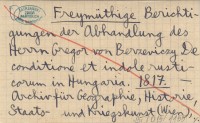 Freymüthige Berichti-
gungen der Abhandlung des
Herrn Gregor von Berzeviczy De
conditione et indole rusti-
corum in Hungaria. 1817. –
Archiv für Geographie, Historie,
Staats- und Kriegskunst